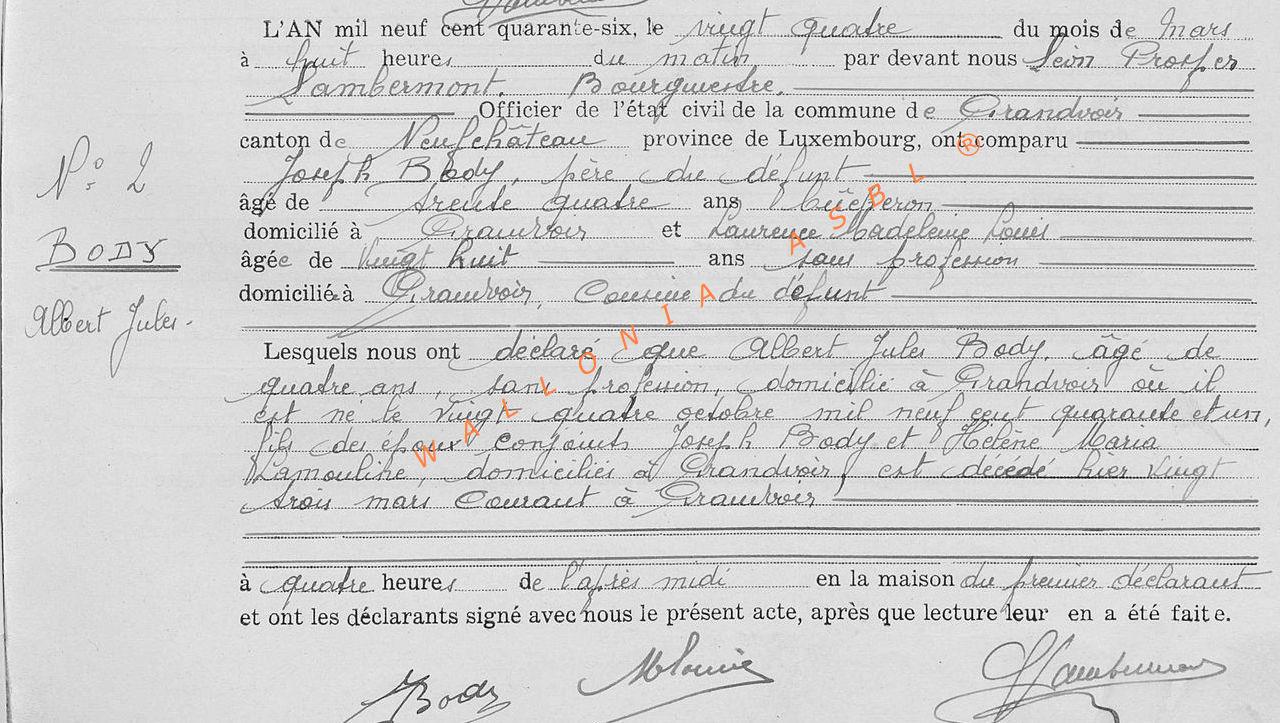 L'AN mil neuf cent quarante-six, le vingt quatre du mois de mars
à huit heures du matin par devant nous Léon Prosper
Lambermont. Bourgmestre.
Officier de l'état civil de la commune de Grandvoir
canton de Neufchâteau province de Luxembourg, ont comparu
Joseph Body, père du défunt
âgé de trente quatre ans
domicilié à Grandvoir et Laurence Madeleine Louis
âgée de vingt huit ans sans profession
domicilié à Grandvoir, Cousine du défunt
N° 2
BODY
Albert Jules.
Lesquels nous ont déclaré que Albert Jules Body, âgé de
quatre ans, sans profession, domicilié à Grandvoir où il
est né le vingt quatre octobre mil neuf cent quarante et un,
fils des époux conjoints Joseph Body et Hélène Maria
Lamouline, domiciliés à Grandvoir, est décédé hier vingt
trois mars courant à Grandvoir
à quatre heures de l'après midi en la maison du premier déclarant
et ont les déclarants signé avec nous le présent acte, après que lecture leur en a été faite.
JBody MLouis Lambermont
WALLONIA ASBL ®